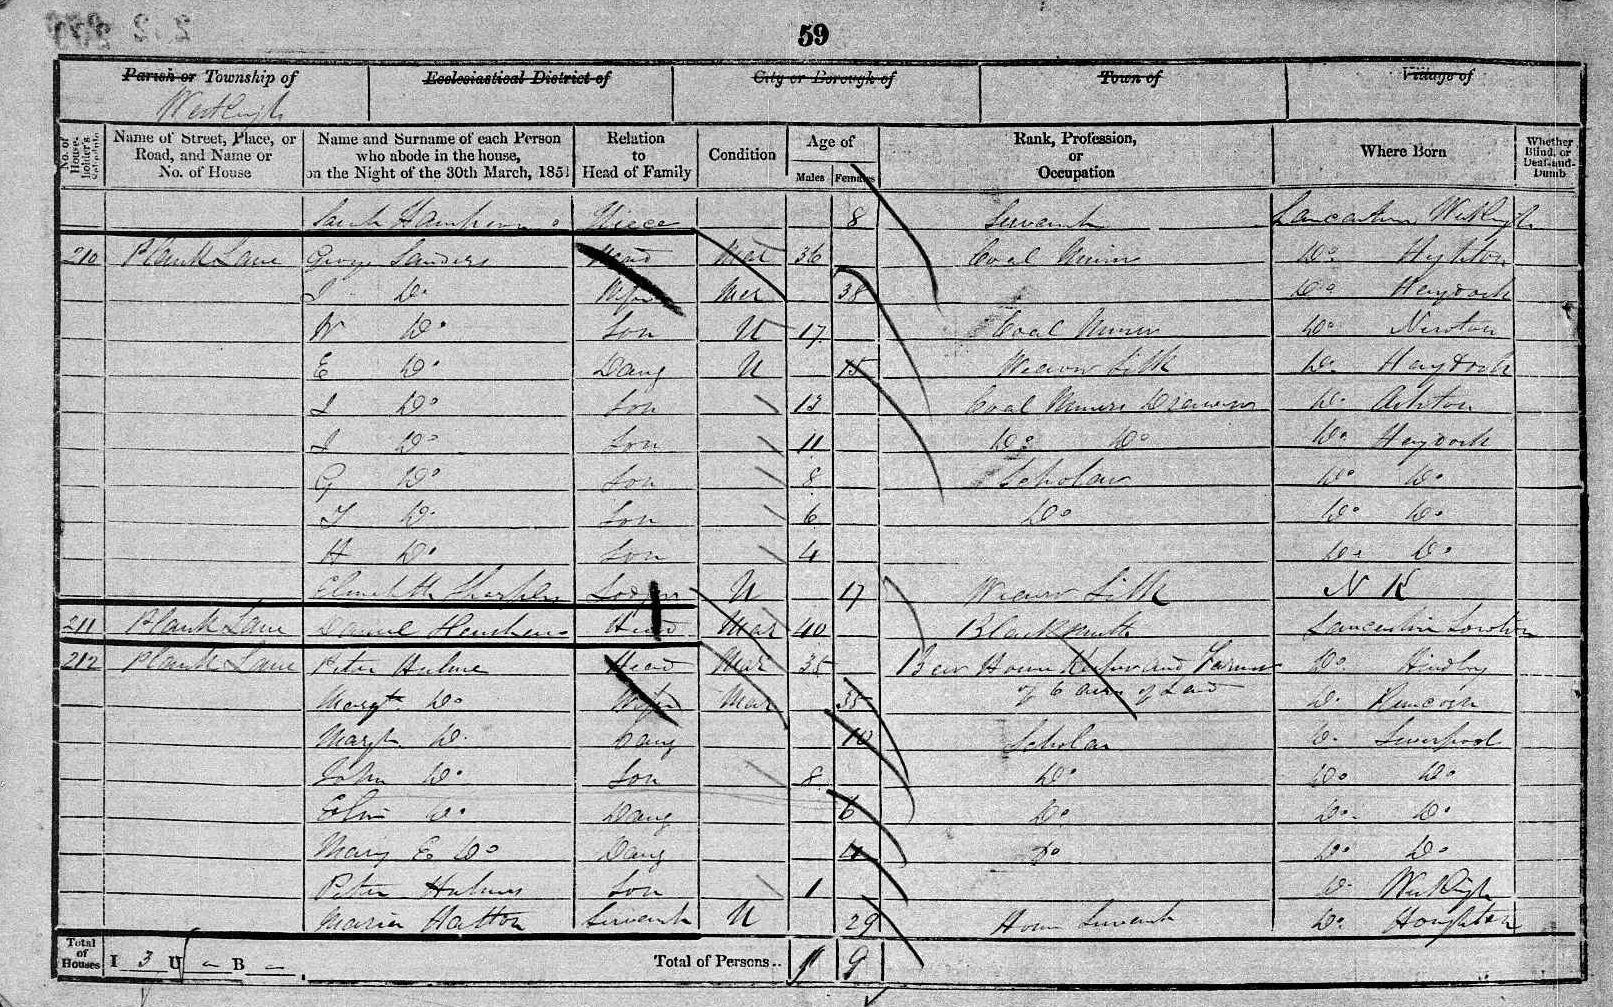 59
Parish or Township of
Ecclesiastical District of
City or Borough of
Town of
Village of
Westleigh
No. of House-holder's Schedule
Name of Street, Place, or Road, and Name or No. of House
Name and Surname of each Person who abode in the house, on the Night of the 30th March, 1851
Relation to Head of Family
Condition
Age of
Males
Females
Rank, Profession, or Occupation
Where Born
Whether Blind, or Deaf-and-Dumb
Sarah Niece 8 Servant Lancashire Westleigh
210 Plank Lane George Sanders Head Mar 36 Coal Miner Do Hyhton
J Do Wife Mar 38 Do Haydock
W Do Son U 17 Coal Miner Do Newton
E Do Daug U 15 Weaver Silk Do Haydock
J Do Son 13 Coal Miners Drawer Do Ashton
J Do Son 11 Do Do Do Haydock
G Do Son 8 Scholar Do Do
T Do Son 6 Do Do Do
H Do Son 4 Do Do
Elizabeth Lodger U 17 Weaver Silk N K
211 Plank Lane Daniel Head Mar 40 Blacksmith Lancashire Lowton
212 Plank Lane Peter Hulme Head Mar 35 Beer House Keeper and Farmer Do Hindley
of 6 acres of Land
Margt Do Wife Mar 35 Do Runcorn
Margt Do Daug 10 Scholar Do Liverpool
John Do Son 8 Do Do Do
Do Daug 6 Do Do Do
Mary E Do Daug 4 Do Do Do
Peter Hulmes Son 1 Do Westleigh
Maria Hatton Servant U 29 House Servant Do Houghton
Total of Houses I 3 U - B -
Total of Persons.. 9